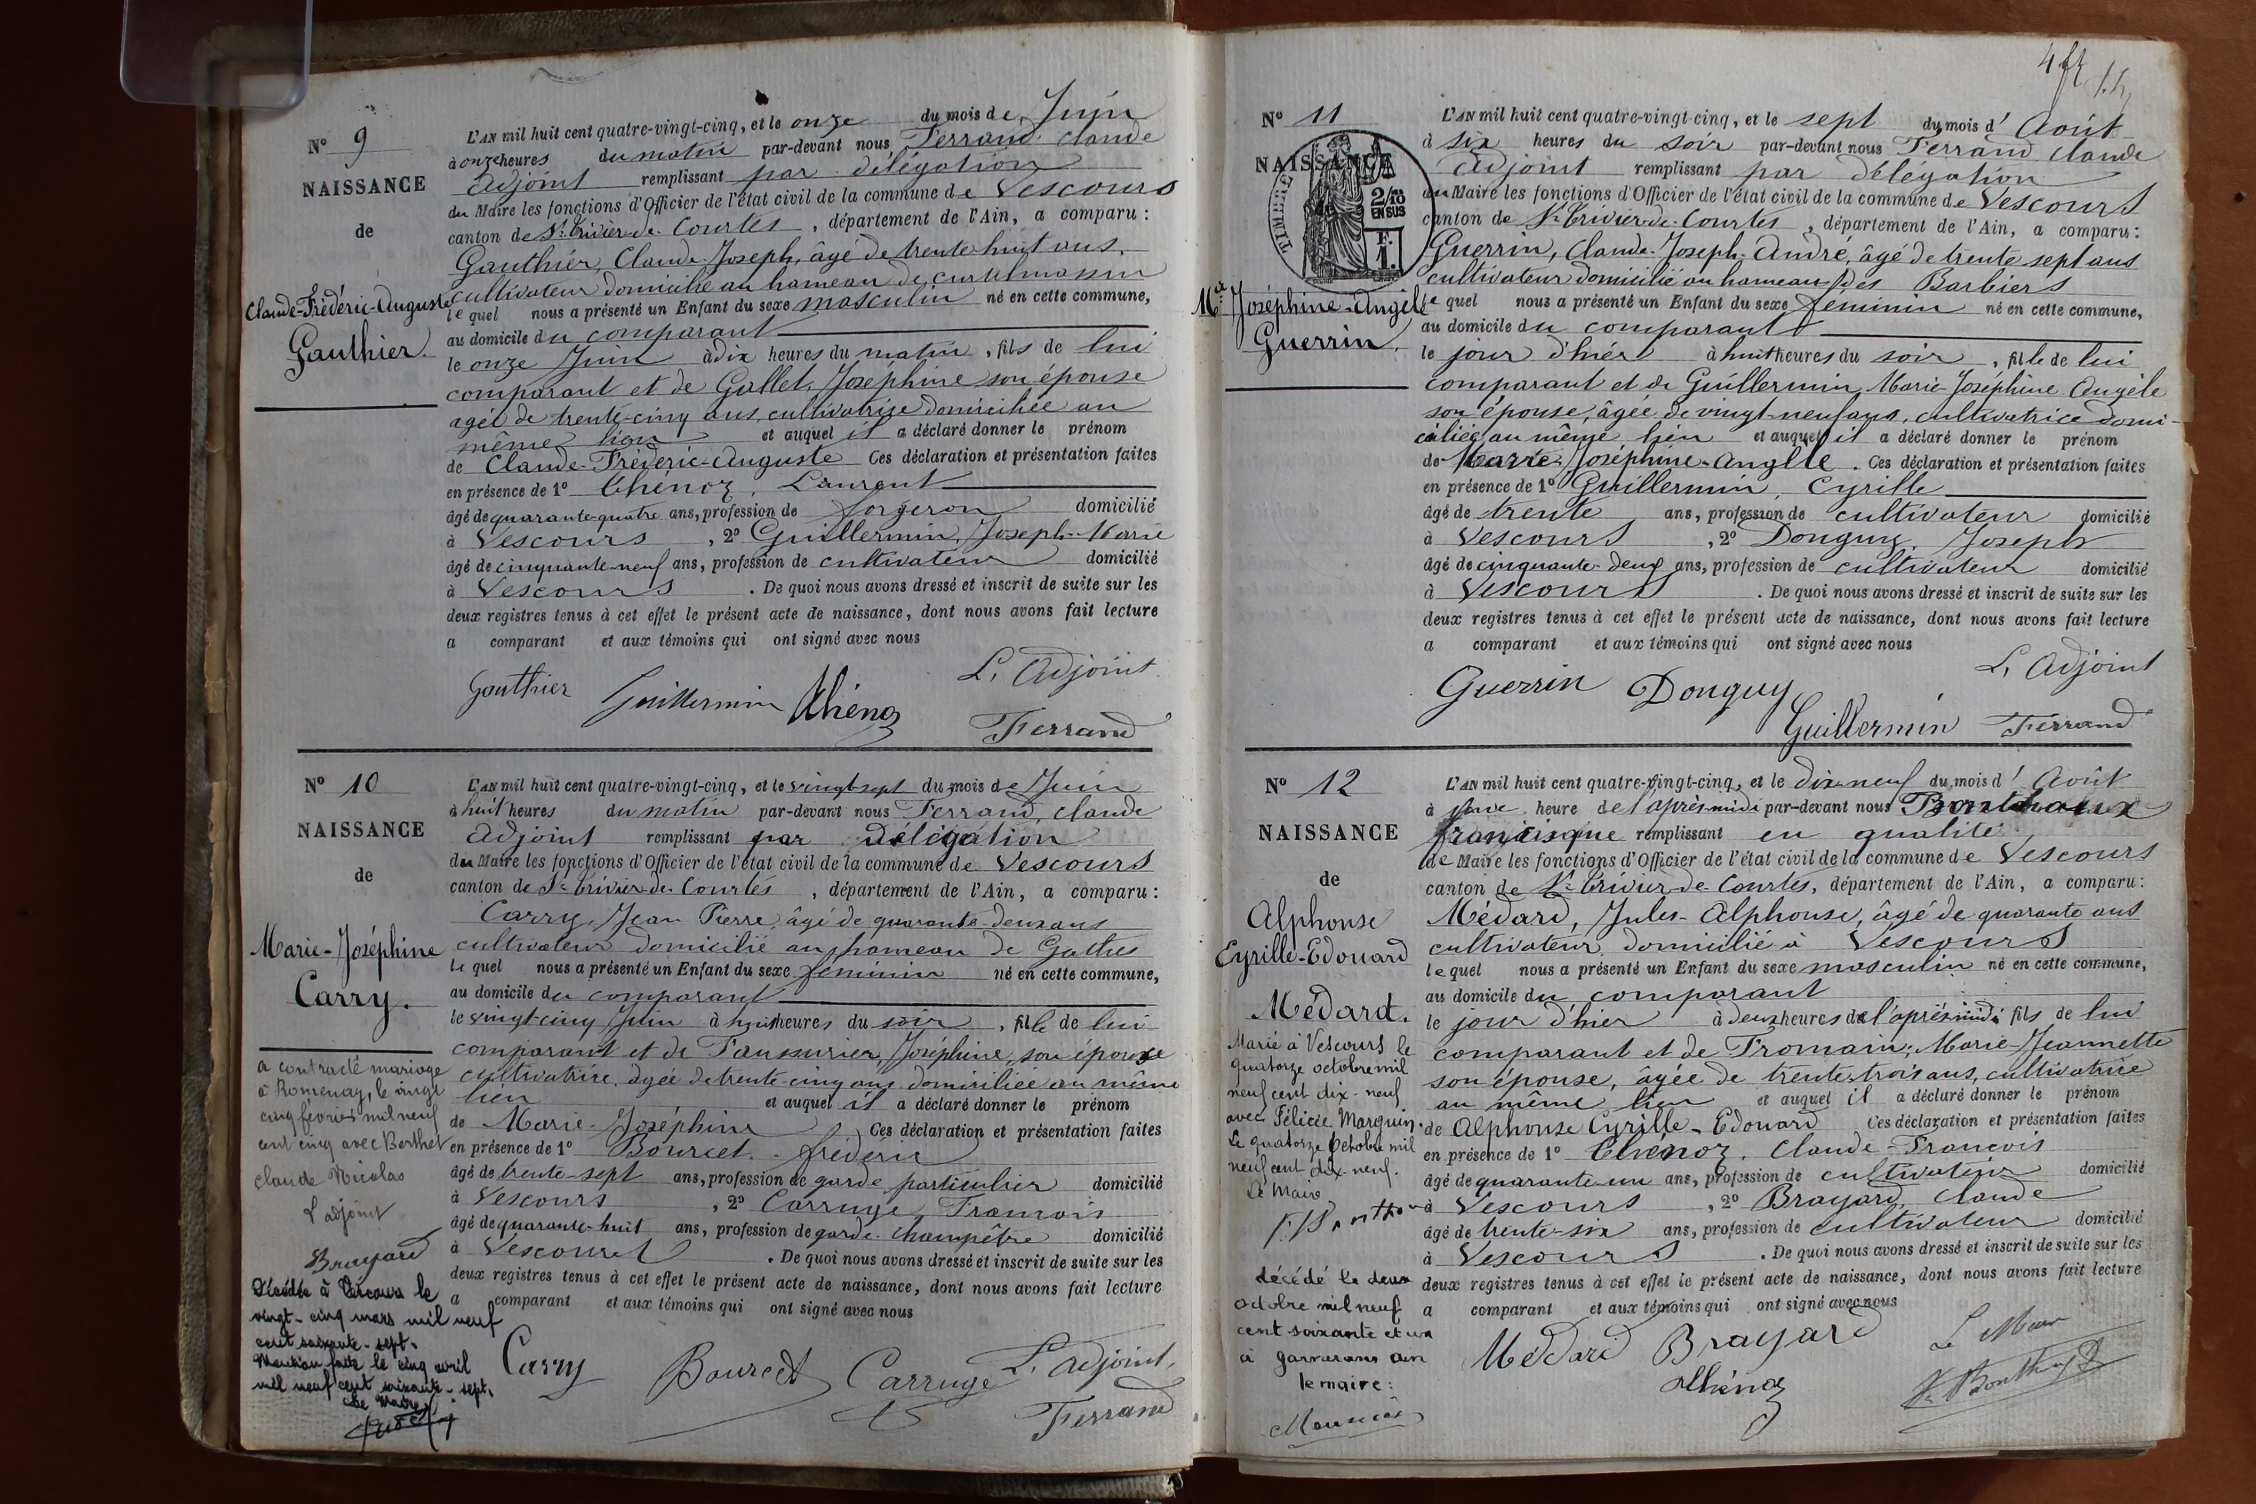 Nº 9
NAISSANCE
de
Claude-Frédéric-Auguste
Gauthier.
L'AN mil huit cent quatre-vingt-cinq, et le onze du mois de Juin
à onze heures du matin par-devant nous Ferrand Claude
Adjoint remplissant par délégation
du Maire les fonctions d'Officier de l'état civil de la commune de Vescours
canton de St Trivier-de-Courtes, département de l'Ain, a comparu :
Gauthier, Claude-Joseph, âgé de trente-huit ans,
cultivateur domicilié au hameau de
le quel nous a présenté un Enfant du sexe masculin né en cette commune,
au domicile du comparant
le onze Juin à dix heures du matin, fils de lui
comparant et de Gallet, Joséphine son épouse
agée de trente-cinq ans, cultivatrice domiciliée au
même lieu et auquel il a déclaré donner le prénom
de Claude-Frédéric-Auguste Ces déclaration et présentation faites
en présence de 1º Thénoz, Laurent
âgé de quarante-quatre ans, profession de forgeron domicilié
à Vescours, 2º Guillermin, Joseph-Marie
âgé de cinquante-neuf ans, profession de cultivateur domicilié
à Vescours. De quoi nous avons dressé et inscrit de suite sur les
deux registres tenus à cet effet le présent acte de naissance, dont nous avons fait lecture
a comparant et aux témoins qui ont signé avec nous
L'Adjoint
Gauthier Guillermin Thénoz
Ferrand
Nº 10
NAISSANCE
de
Marie-Joséphine
Carry.
a contracté mariage
à Romenay, le vingt
cinq février mil neuf
cent cinq avec Berthet
Claude Nicolas
L'adjoint
Brayard
Décédée à Vescours le
vingt-cinq mars mil neuf
cent soixante-sept.
Mention faite le cinq avril
mil neuf cent soixante-sept.
Le Maire
L'AN mil huit cent quatre-vingt-cinq, et le vingt-sept du mois de Juin
à huit heures du matin par-devant nous Ferrand, Claude
Adjoint remplissant par délégation
du Maire les fonctions d'Officier de l'état civil de la commune de Vescours
canton de St Trivier-de-Courtes, département de l'Ain, a comparu :
Carry, Jean Pierre, âgé de quarante-deux ans
cultivateur domicilié au hameau de
le quel nous a présenté un Enfant du sexe féminin né en cette commune,
au domicile du comparant
le vingt-cinq Juin à huit heures du soir, fille de lui
comparant et de Joséphine, son épouse
cultivatrice, agée de trente-cinq ans domiciliée au même
lieu et auquel il a déclaré donner le prénom
de Marie-Joséphine Ces déclaration et présentation faites
en présence de 1º Bourcet, fréderic
âgé de trente-sept ans, profession de garde particulier domicilié
à Vescours, 2º Carruge, Francois
âgé de quarante-huit ans, profession de garde-champêtre domicilié
à Vescours. De quoi nous avons dressé et inscrit de suite sur les
deux registres tenus à cet effet le présent acte de naissance, dont nous avons fait lecture
a comparant et aux témoins qui ont signé avec nous
Carry Bourcet Carruge L'Adjoint,
Ferrand
4
Nº 11
NAISSANCE
TIMBRE
2/10 EN SUS
F. 1.
Mie Joséphine-Angèle
Guerrin.
L'AN mil huit cent quatre-vingt-cinq, et le sept du mois d'Août
à six heures du soir par-devant nous Ferrand Claude
Adjoint remplissant par délégation
du Maire les fonctions d'Officier de l'état civil de la commune de Vescours
canton de St Trivier-de-Courtes, département de l'Ain, a comparu :
Guerrin, Claude-Joseph-André, âgé de trente sept ans
cultivateur domicilié au hameau des Barbiers
le quel nous a présenté un Enfant du sexe féminin né en cette commune,
au domicile du comparant
le jour d'hier à huit heures du soir, fille de lui
comparant et de Guillermin, Marie-Joséphine Angèle
son épouse, âgée de vingt-neuf ans, cultivatrice domi-
ciliée au même lieu et auquel il a déclaré donner le prénom
de Marie-Joséphine-Angèle. Ces déclaration et présentation faites
en présence de 1º Guillermin, Cyrille
âgé de trente ans, profession de cultivateur domicilié
à Vescours, 2º Donguy, Joseph
âgé de cinquante-deux ans, profession de cultivateur domicilié
à Vescours. De quoi nous avons dressé et inscrit de suite sur les
deux registres tenus à cet effet le présent acte de naissance, dont nous avons fait lecture
a comparant et aux témoins qui ont signé avec nous
L'Adjoint
Guerrin Donguy
Guillermin Ferrand
Nº 12
NAISSANCE
de
Alphonse
Cyrille-Edouard
Médard.
Marié à Vescours le
quatorze octobre mil
neuf cent dix-neuf
avec Félicie Marguin.
Le quatorze Octobre mil
neuf cent dix-neuf.
Le Maire
décédé le deux
octobre mil neuf
cent soixante et un
à
le maire:
L'AN mil huit cent quatre-vingt-cinq, et le dix-neuf du mois d'Août
à heure de l'après midi par-devant nous
francisque remplissant en qualité
de Maire les fonctions d'Officier de l'état civil de la commune de Vescours
canton de St Trivier-de-Courtes, département de l'Ain, a comparu :
Médard, Jules-Alphonse, âgé de quarante ans
cultivateur domicilié à Vescours
le quel nous a présenté un Enfant du sexe masculin né en cette commune,
au domicile du comparant
le jour d'hier à deux heures de l'après-midi, fils de lui
comparant et de Fromain, Marie-Jeannette
son épouse, âgée de trente-trois ans, cultivatrice
au même lieu et auquel il a déclaré donner le prénom
de Alphonse Cyrille-Edouard Ces déclaration et présentation faites
en présence de 1º Thénoz, Claude-Francois
âgé de quarante-un ans, profession de cultivateur domicilié
à Vescours, 2º Brayard, Claude
âgé de trente-six ans, profession de cultivateur domicilié
à Vescours. De quoi nous avons dressé et inscrit de suite sur les
deux registres tenus à cet effet le présent acte de naissance, dont nous avons fait lecture
a comparant et aux témoins qui ont signé avec nous
Médard Brayard Le Maire
Thénoz